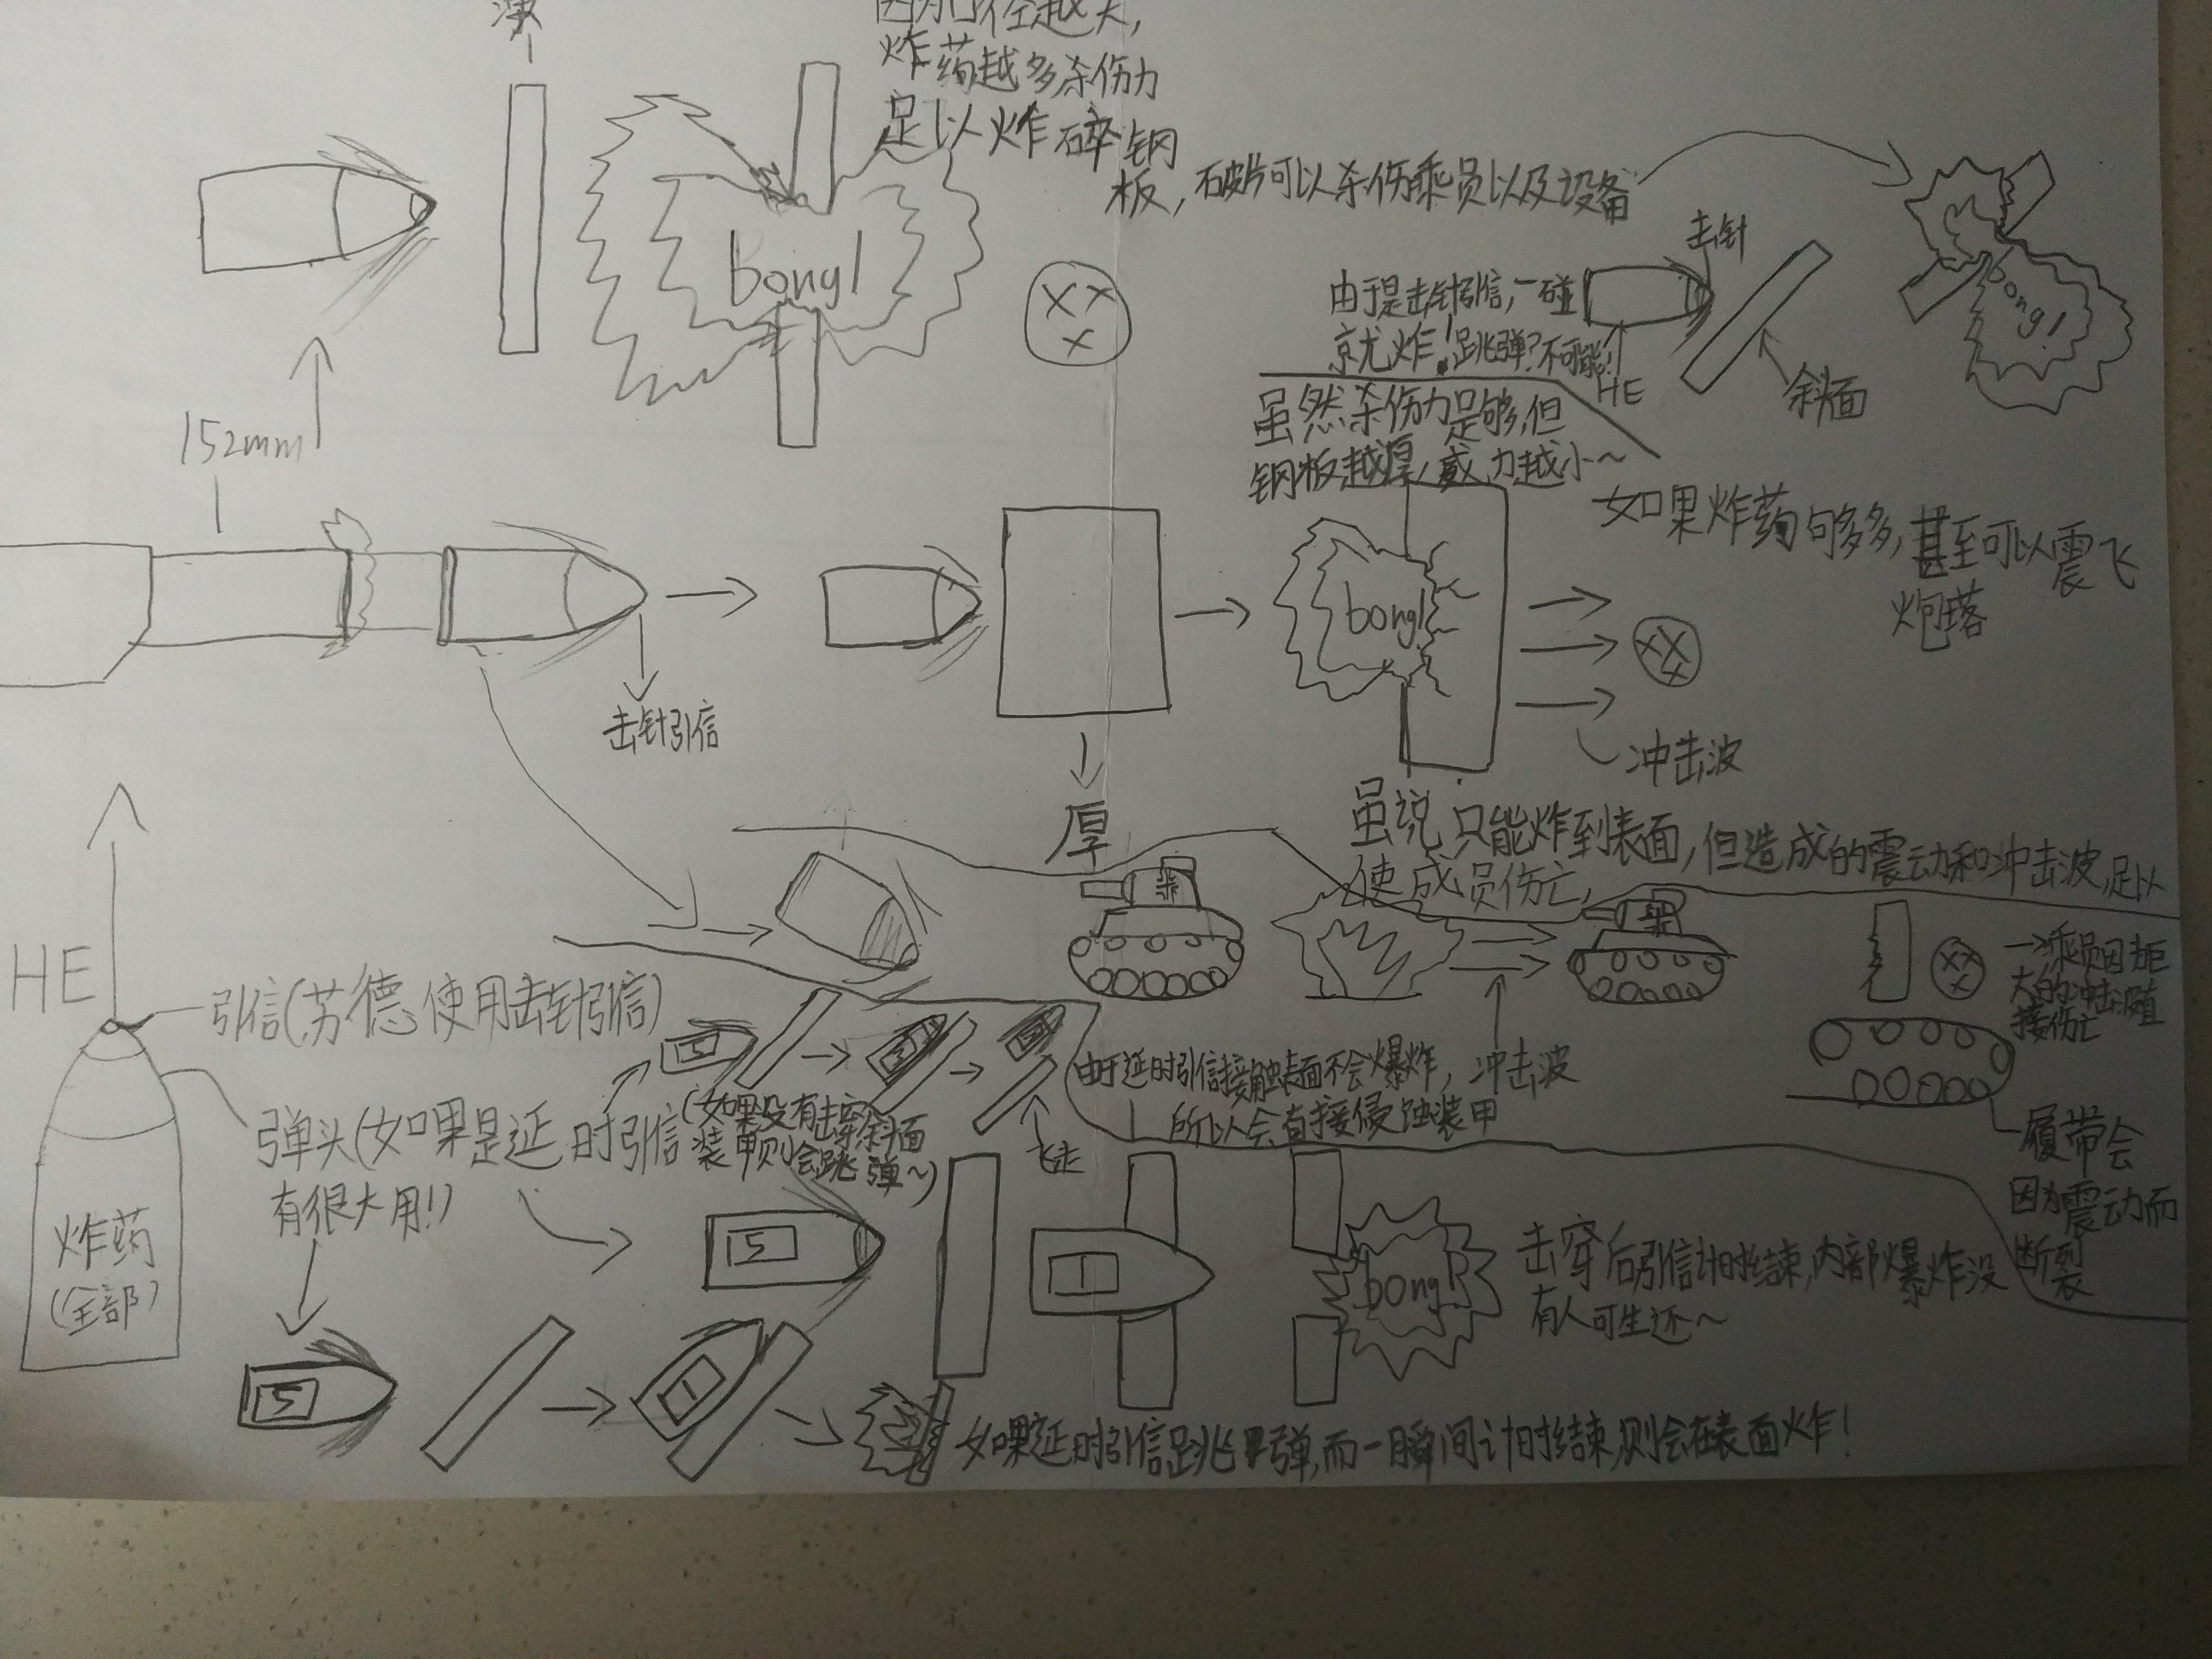 薄
因为口径越大,
炸药越多杀伤力
足以炸碎钢
板,破片可以杀伤乘员以及设备
bong!
bong!
击针
由于是击针引信,一碰
就炸!跳弹?不可能!
HE
斜面
152mm
虽然杀伤力足够,但
钢板越厚,威力越小~
如果炸药句多多,甚至可以震飞
炮塔
bong!
击针引信
冲击波
厚
虽说只能炸到表面,但造成的震动和冲击波,足以
使成员伤亡,
HE
引信(苏德使用击针引信)
弹头(如果是延时引信
有很大用!)
炸药
(全部)
5
(如果没有击穿斜面
装甲则会跳弹~)
飞走
由于延时引信接触表面不会爆炸,
所以会直接侵蚀装甲
冲击波
→乘员因为巨
大的冲击波直
接伤亡
履带会
因为震动而
断裂
5
1
bong!
击穿后引信计时结束,内部爆炸没
有人可生还~
5
1
如果延时引信跳弹,而一瞬间计时结束,则会在表面炸!